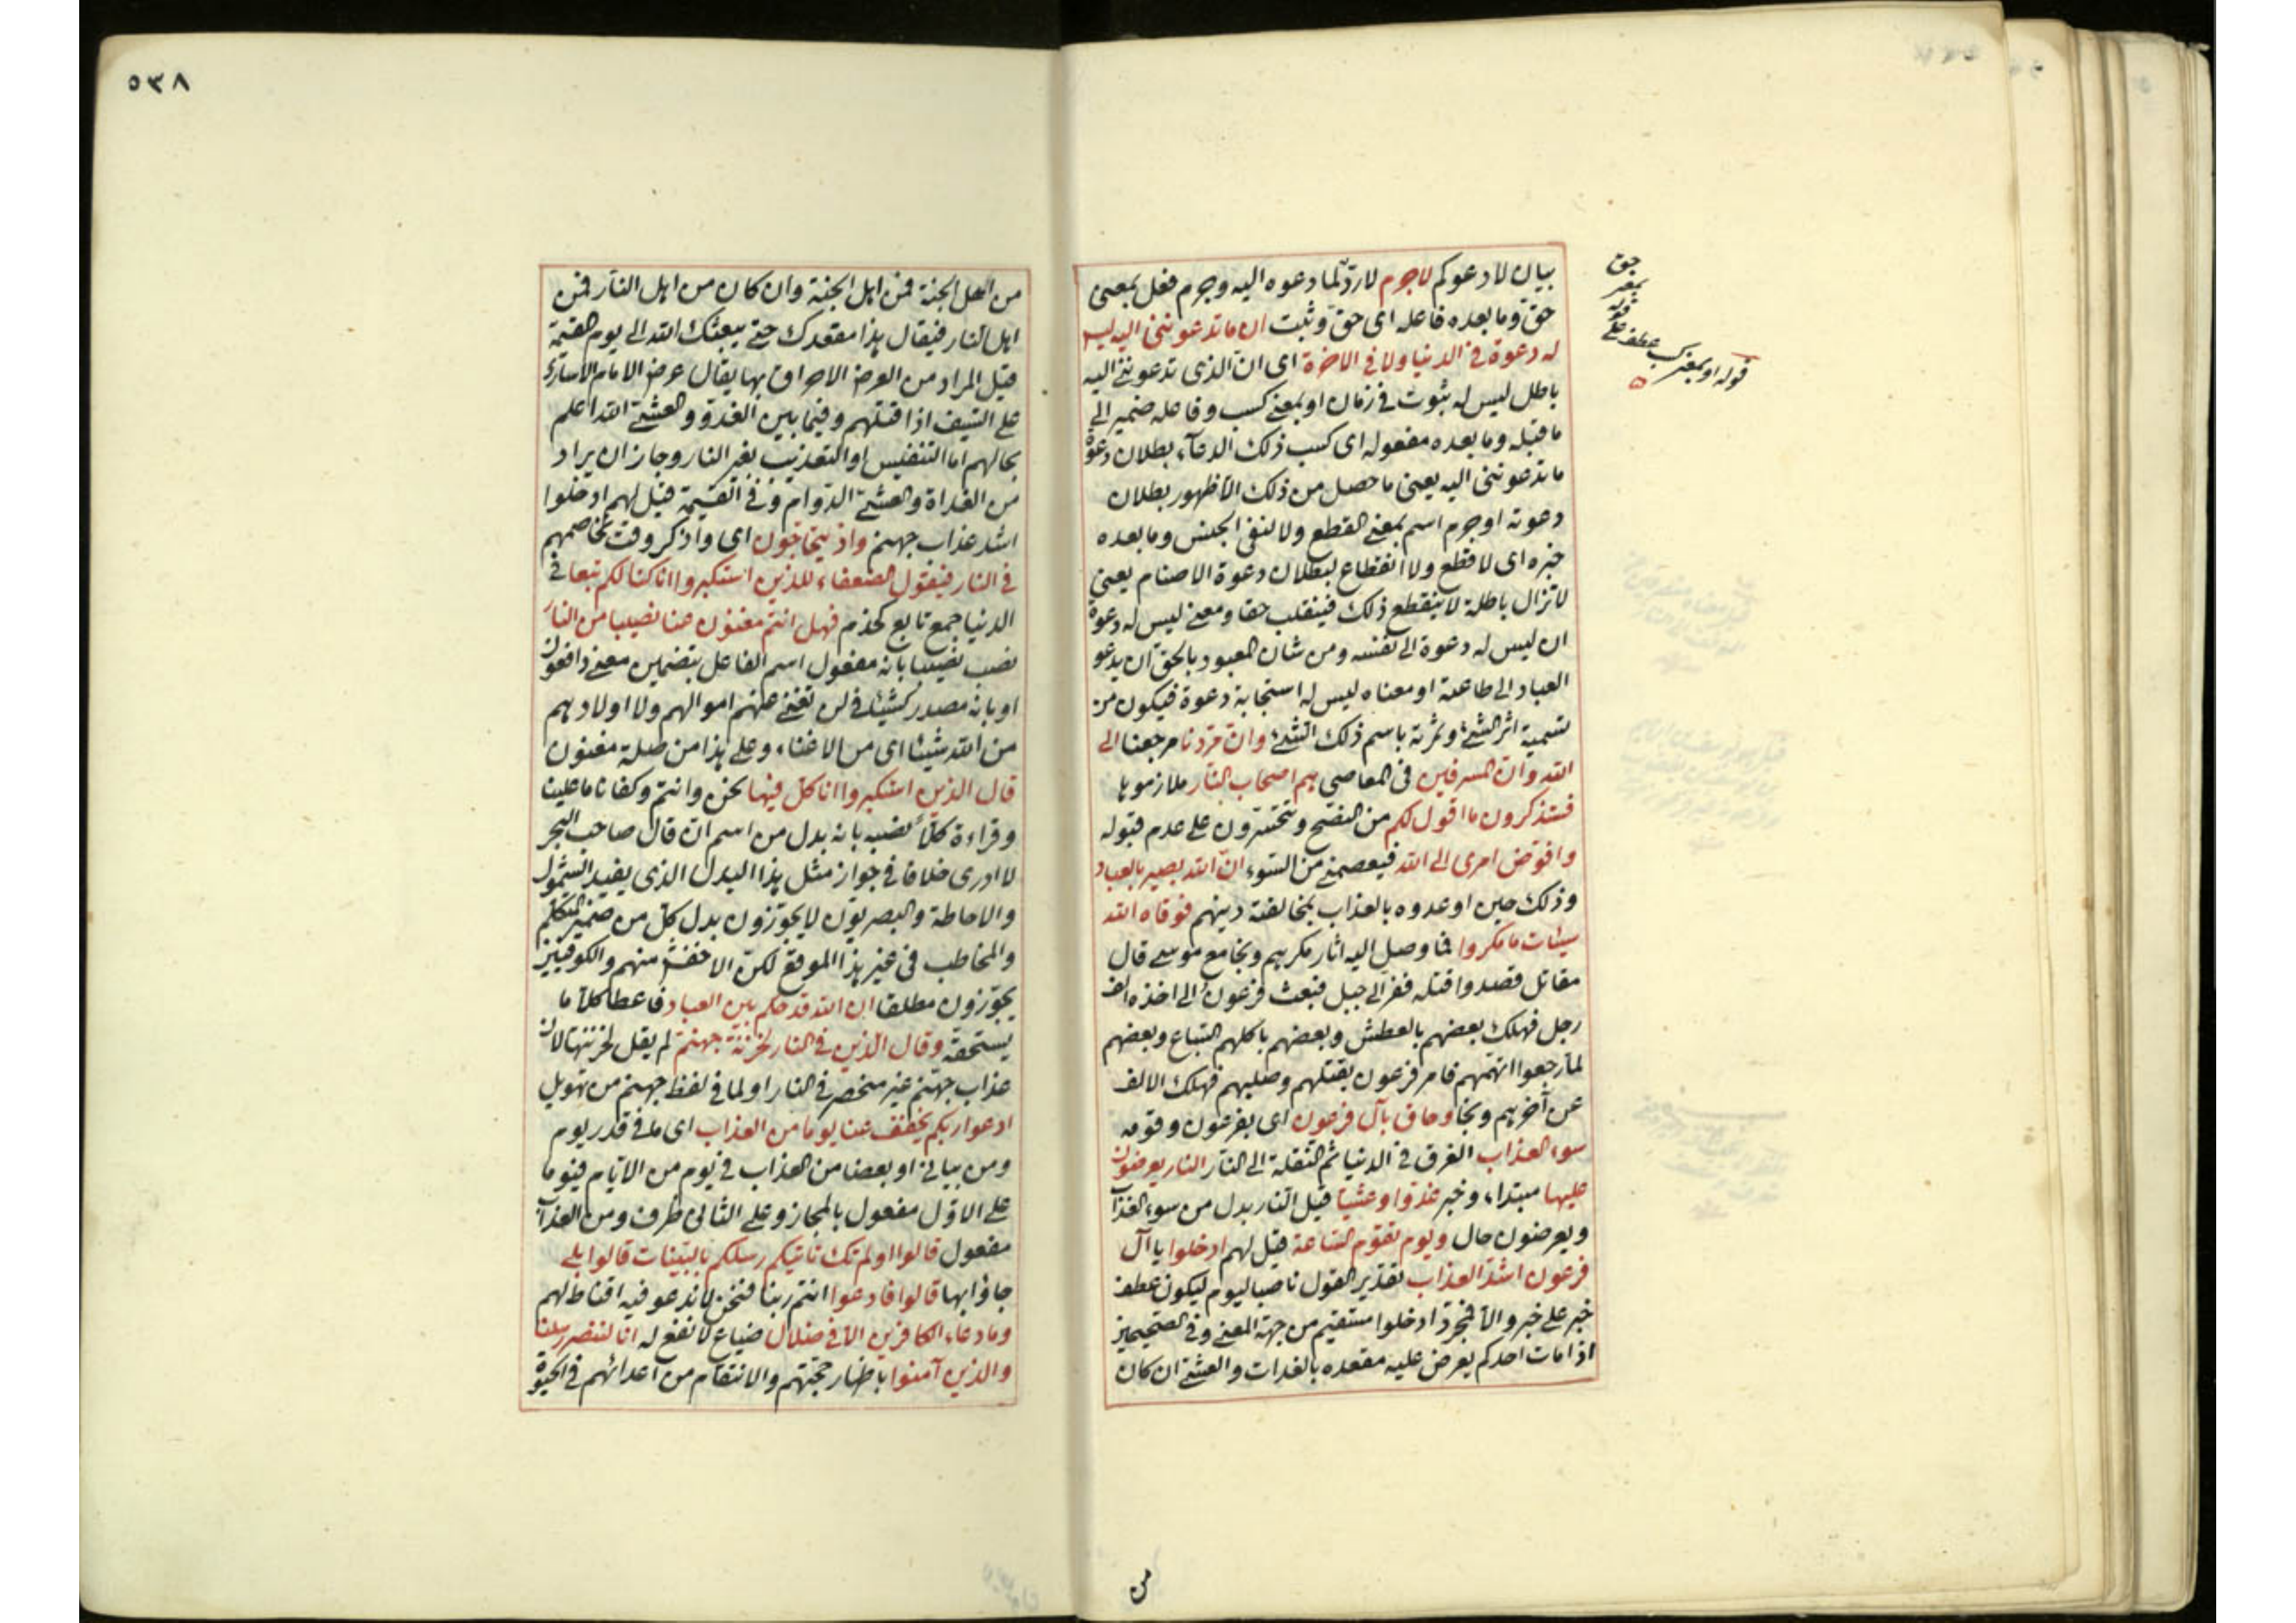 بيان لا دعوكم لاجرم لا ردّ لما دعوه اليه وجرم فعل بمعنى
حق وما بعده فاعله اى حق وثبت ان ما تدعوننى اليه ليس
له دعوة فى الدنيا ولا فى الاخرة اى ان الذى تدعوننى اليه
باطل ليس له ثبوت فى زمان او بمعنى كسب وفاعله ضمير الى
ما قبله وما بعده مفعوله اى كسب ذلك الدعآء بطلان دعوة
ما تدعوننى اليه يعنى ما حصل من ذلك الا ظهور بطلان
دعوته او جرم اسم بمعنى القطع ولا لنفى الجنس وما بعده
خبره اى لا قطع ولا انقطاع لبطلان دعوة الاصنام يعنى
لا تزال باطلة لا ينقطع ذلك فينقلب حقا ومعنى ليس له دعوة
ان ليس له دعوة الى نفسه ومن شان المعبود بالحق ان يدعو
العباد الى طاعته او معناه ليس له استجابة دعوة فيكون من
تسمية اثر الشئ وثمرته باسم ذلك الشئ وان مردنا مرجعنا الى
الله وان المسرفين فى المعاصى هم اصحاب النار ملازموها
فستذكرون ما اقول لكم من النصح وتتحسرون على عدم قبوله
وافوّض امرى الى الله فيعصمنى من السّوء ان الله بصير بالعباد
وذلك حين اوعدوه بالعذاب بمخالفته دينهم فوقاه الله
سيئات ما مكروا فما وصل اليه اثار مكرهم ونجا مع موسى قال
مقاتل قصدوا قتله ففر الى جبل فبعث فرعون الى اخذه الف
رجل فهلك بعضهم بالعطش وبعضهم باكلهم السّباع وبعضهم
لما رجعوا اتهمهم فامر فرعون بقتلهم وصلبهم فهلك الالف
عن آخرهم ونجا وحاق بآل فرعون اى بفرعون وقومه
سوء العذاب الغرق فى الدنيا ثم النقلة الى النار النار يعرضون
عليها مبتداء وخبر غدوا وعشيا قيل النار بدل من سوء العذاب
ويعرضون حال ويوم تقوم السّاعة قيل لهم ادخلوا يا آل
فرعون اشدّ العذاب تقدير القول ناصبا ليوم ليكون عطف
خبر على خبر والا فمجرد ادخلوا مستقيم من جهة المعنى وفى الصحيحين
اذا مات احدكم يعرض عليه مقعده بالغدات والعشى ان كان
حق
بمعنى
قوله
عطف على
قوله او بمعنى كسب
من
٥٣٨
من اهل الجنة فمن اهل الجنة وان كان من اهل النار فمن
اهل النار فيقال هذا مقعدك حتى يبعثك الله الى يوم القيمة
قيل المراد من العرض الاحراق بها يقال عرض الامام الاسارى
على السّيف اذا قتلهم وفيما بين الغدوّ والعشى الله اعلم
بحالهم اما التنفيس او التعذيب بغير النار وجاز ان يراد
من الغداة والعشى الدّوام وفى القيمة قيل لهم ادخلوا
اشد عذاب جهنم واذ يتحاجّون اى واذكر وقت تخاصمهم
فى النار فيقول الضعفاء للذين استكبروا انا كنا لكم تبعا فى
الدنيا جمع تابع كخدم فهل انتم مغنون عنا نصيبا من النار
نصب نصيبا بانه مفعول اسم الفاعل بتضمين معنى دافعون
او بانه مصدر كشيئا فى لن تغنى عنهم اموالهم ولا اولادهم
من الله شيئا اى من الاغناء وعلى هذا من صلة مغنون
قال الذين استكبروا انا كل فيها نحن وانتم وكفانا ما علينا
وقراءة كلا نصبه بانه بدل من اسم ان قال صاحب البحر
لا ادرى خلافا فى جواز مثل هذا البدل الذى يفيد الشمول
والاحاطة والبصريون لا يجوّزون بدل كل من ضمير المتكلم
والمخاطب فى غير هذا الموقع لكن الاخفش منهم والكوفيين
يجوّزون مطلقا ان الله قد حكم بين العباد فاعطا كلا ما
يستحقه وقال الذين فى النار لخزنة جهنم لم يقل لخزنتها لان
عذاب جهنم غير منحصر فى النار او لما فى لفظ جهنم من تهويل
ادعوا ربكم يخفف عنا يوما من العذاب اى ما فى قدر يوم
ومن بيانى او بعضا من العذاب فى يوم من الايام فيوما
على الاول مفعول بالمجاز وعلى الثانى ظرف ومن العذاب
مفعول قالوا اولم تك تاتيكم رسلكم بالبينات قالوا بلى
جاؤا بها قالوا فادعوا انتم ربنا فنحن لا ندعو فيه اقناط لهم
وما دعاء الكافرين الا فى ضلال ضياع لا نفع له انا لننصر رسلنا
والذين آمنوا باظهار حجتهم والانتقام من اعدائهم فى الحيوة